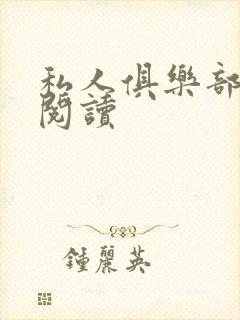 私人俱樂部
閱讀
鍾麗英